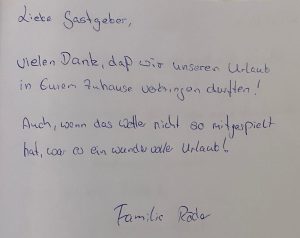 Liebe Gastgeber,
vielen Dank, daß wir unseren Urlaub
in Eurem Zuhause verbringen durften!
Auch, wenn das Wetter nicht so mitgespielt
hat, war es ein wundervoller Urlaub!
Familie Rader